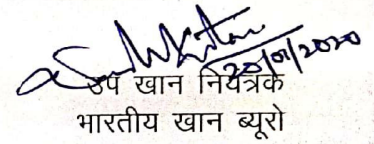 20/01/2020
उप खान नियंत्रक
भारतीय खान ब्यूरो